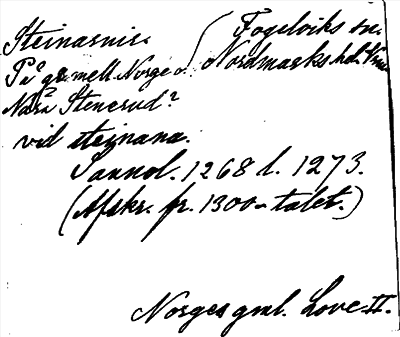 Steinasnir.
Fogelviks sn.
På gr. mell. Norge o. Nordmarks hd. Vrml
Nära Stenerud?
vid steinana.
Sannol. 1268 l. 1273.
(Afskr. fr. 1300-talet.)
Norges gml. Love II.